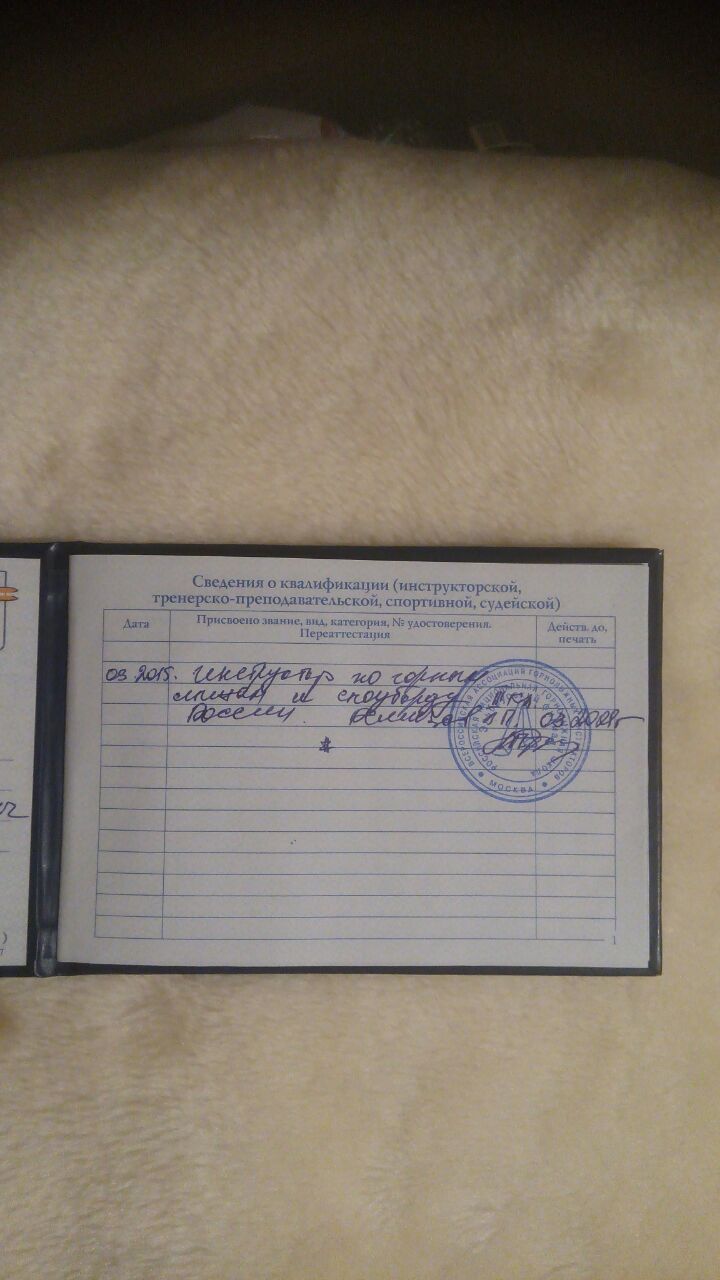 Сведения о квалификации (инструкторской,
тренерско-преподавательской, спортивной, судейской)
Дата
Присвоено звание, вид, категория, № удостоверения.
Переаттестация
Действ. до,
печать
03.2015. Инструктор по горным
лыжам и сноуборду
России.
ВСЕРОССИЙСКАЯ АССОЦИАЦИЯ ГОРНОЛЫЖНЫХ ИНСТРУКТОРОВ
МОСКВА
1